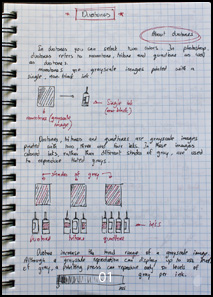 Duotones
About duotones
In duotones you can select two colors. In photoshop,
duotones refers to monotones, tritones and quadtones as well
as duotones.
monotones are grayscale images printed with a
single, non black
Single ink
(non black)
monotones (grayscale
image)
Duotones, tritones and quadtones are grayscale images
printed with two, three and four inks. In these images
colored inks, rather than different shades of gray, are used
to reproduce tinted grays.
shades of gray
Duotones
tritones
quadtones
inks
Duotones increase the tonal range of a grayscale image.
Although a grayscale reproduction can display up to 256 levels
of gray, a printing press can reproduce only 50 levels of
gray per ink.
01